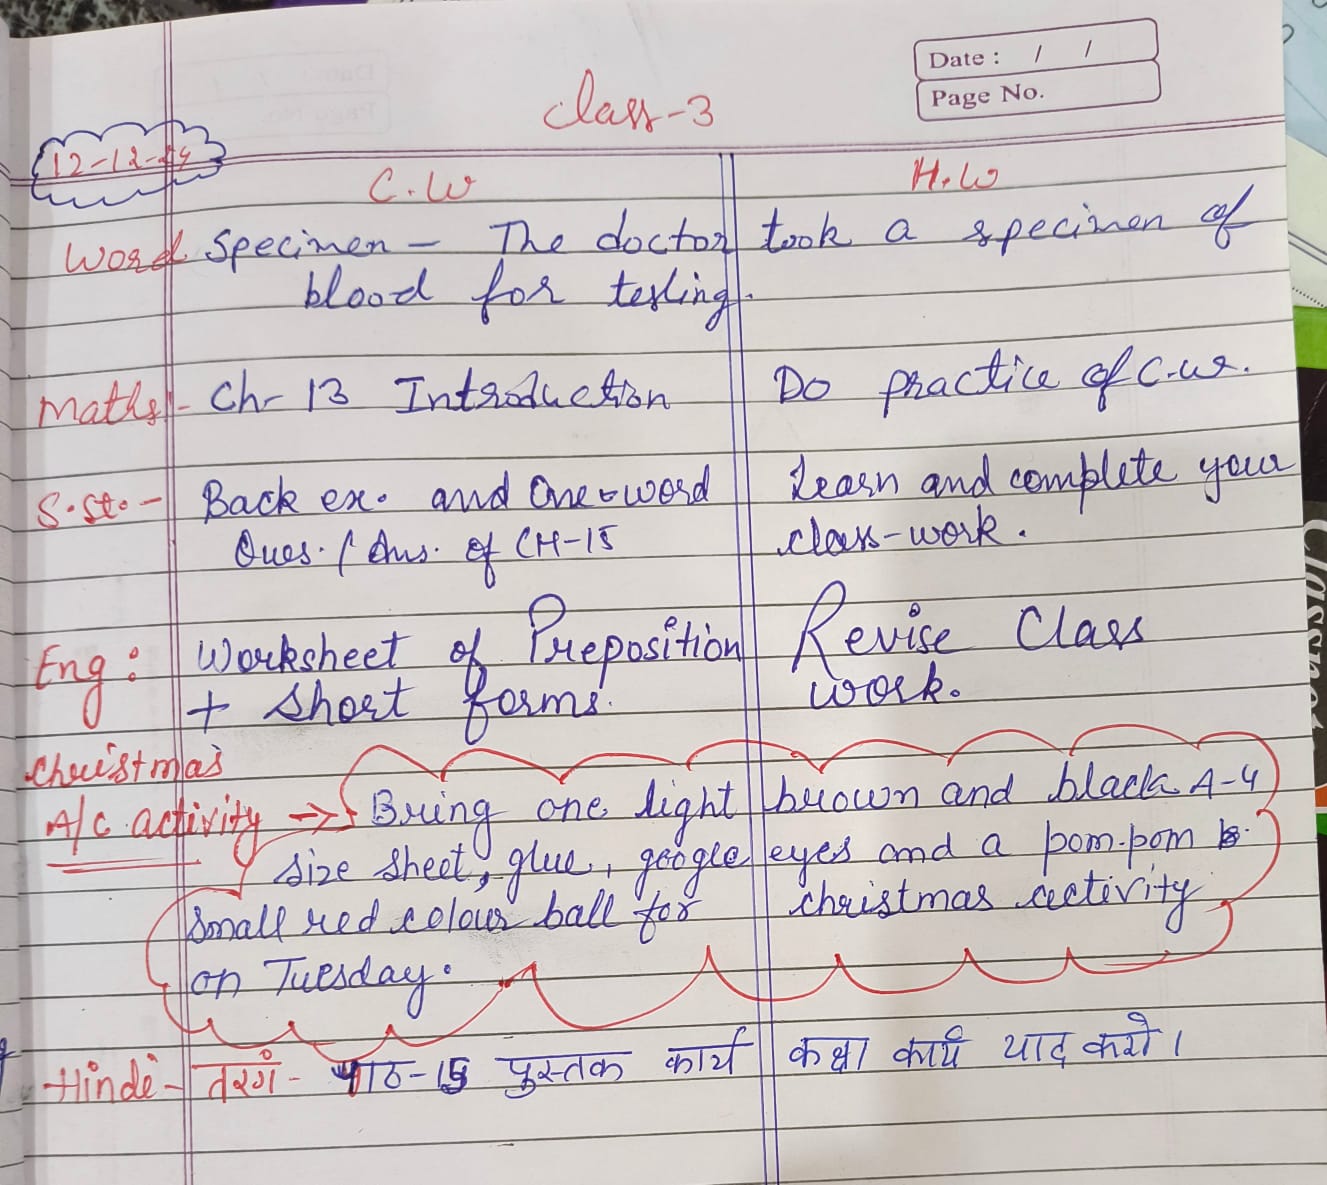 Date : / /
Page No.
Class-3
12-12-24
C.W H.W
Word Specimen - The doctor took a specimen of
blood for testing.
Maths - Ch- 13 Introduction Do practice of c.w.
S.St. - Back ex. and One-word Learn and complete your
Ques. / Ans. of CH-15 class-work.
Eng : Worksheet of Preposition Revise Class
+ Short forms. work.
Christmas
A/C activity → Bring one light brown and black A-4
size sheet, glue, google eyes and a pom-pom
small red colour ball for christmas activity
on Tuesday.
Hindi - तरंग - पाठ-15 पुस्तक कार्य कक्षा कार्य याद करो।